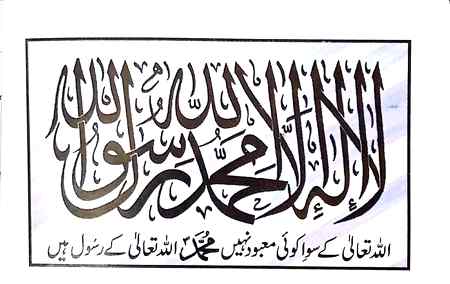 لا إله إلا الله محمد رسول الله
اللہ تعالیٰ کے سوا کوئی معبود نہیں محمدؐ اللہ تعالیٰ کے رسول ہیں